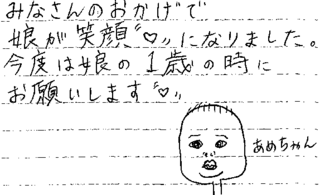 みなさんのおかげで
娘が笑顔"♡"になりました。
今度は娘の1歳の時に
お願いします"♡"
あめちゃん